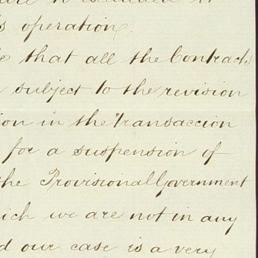 s operation.
that all the Contracts
subject to the revision
ion in the Transaccion
for a suspension of
the Provisional Government
ich we are not in any
d our case is a very